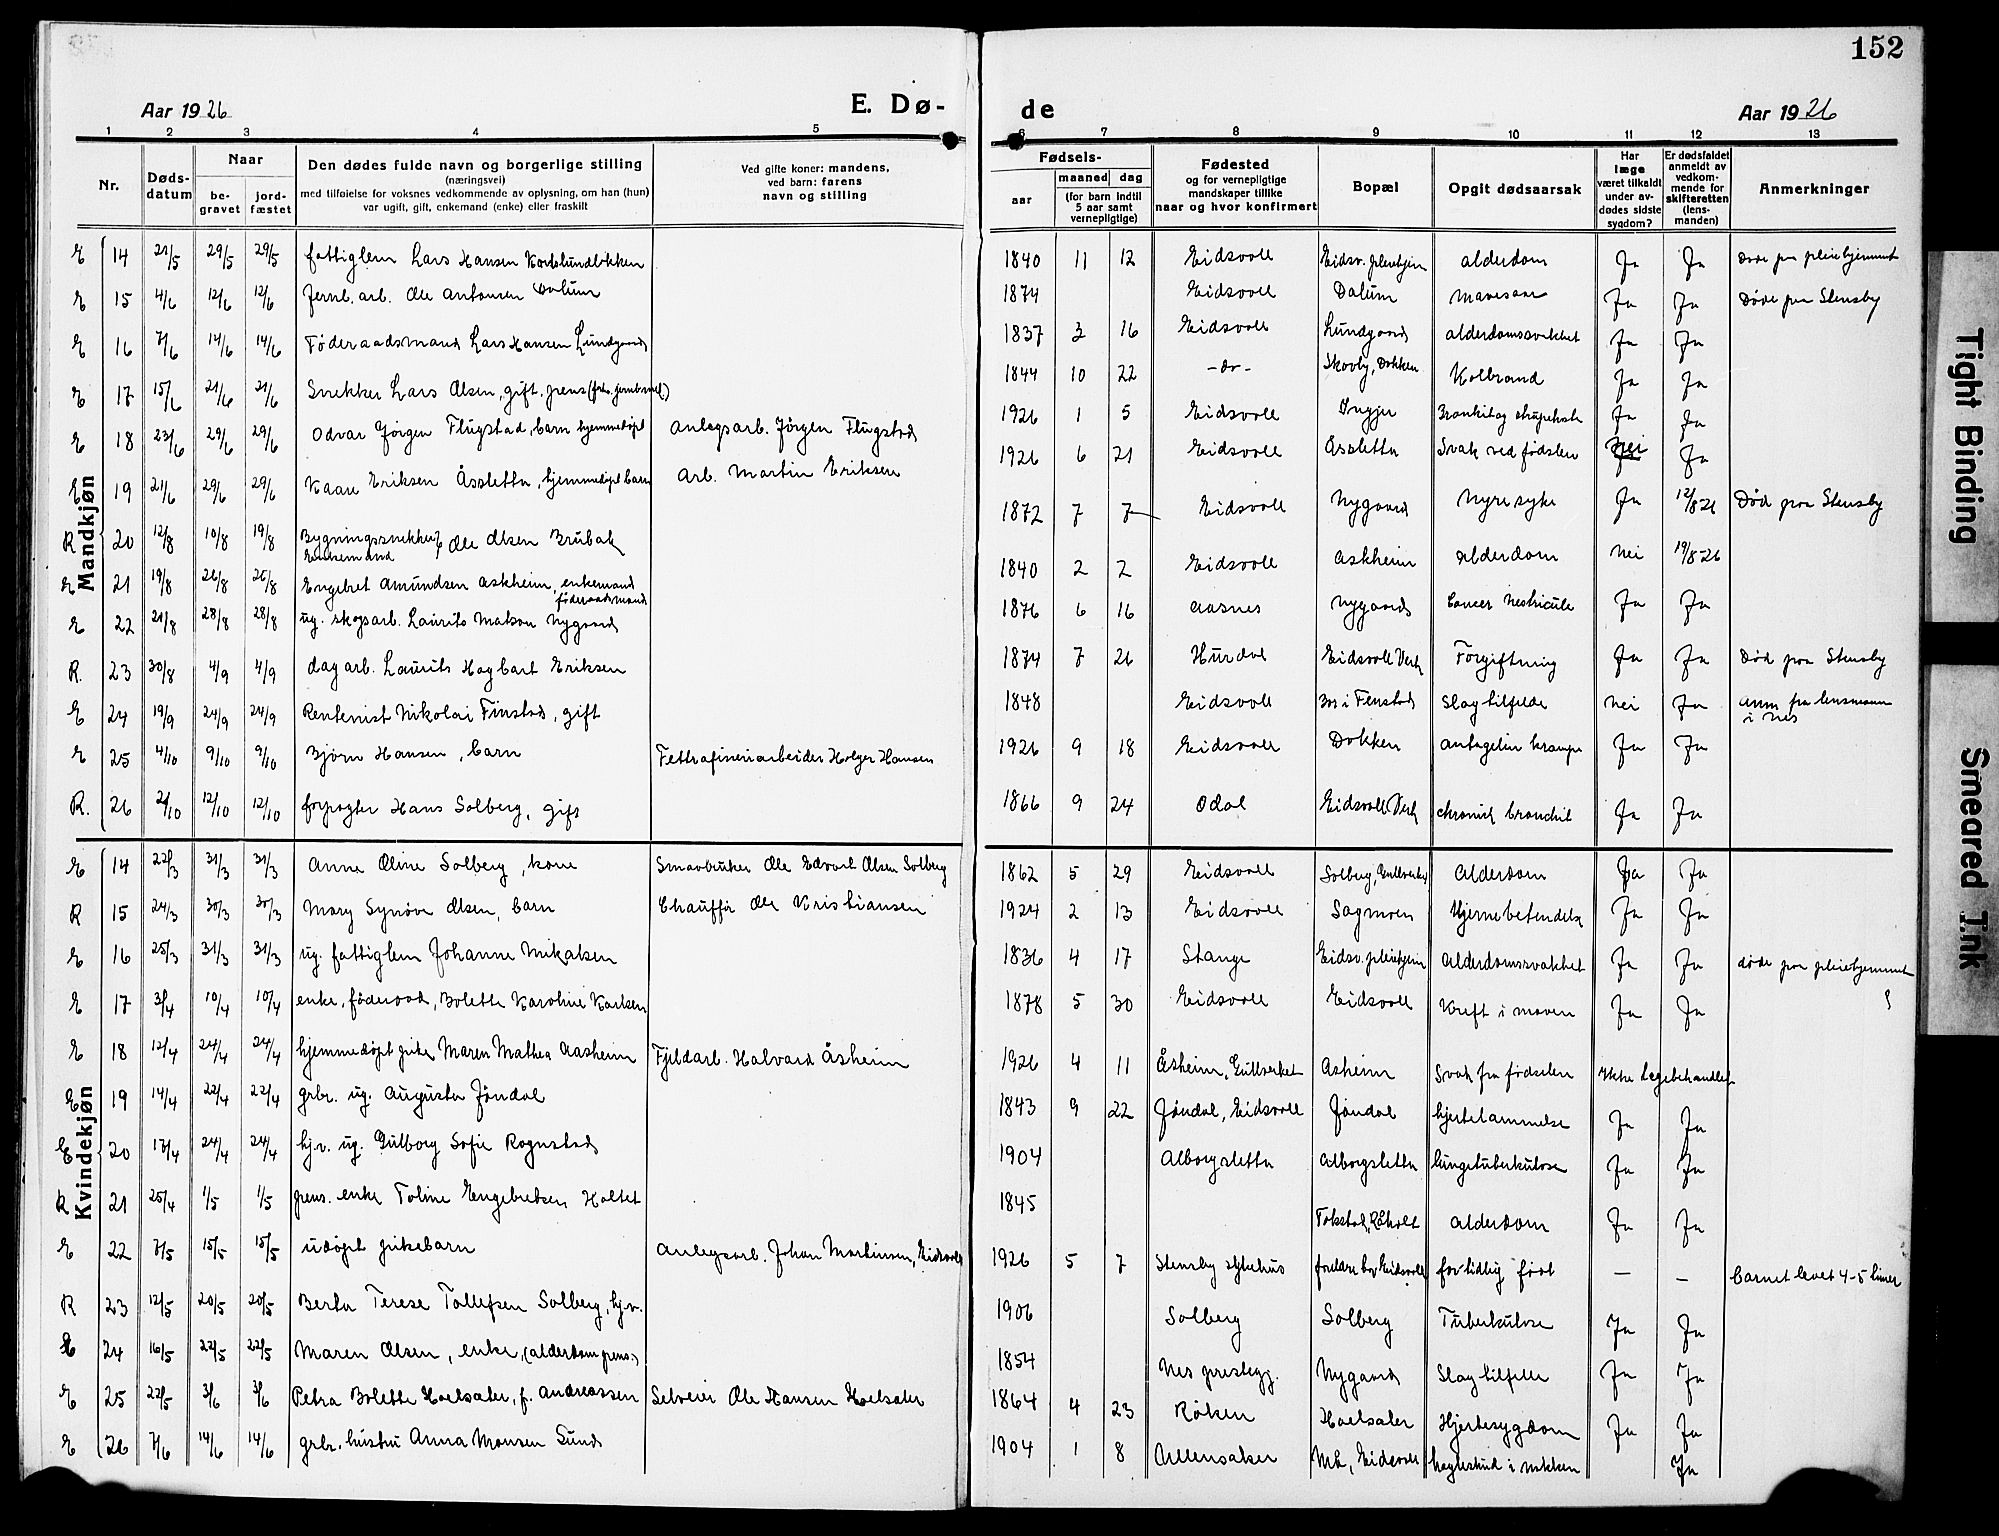 152
Aar 1926 E. Dø- de Aar 1926
1 2 3 4 5 6 7 8 9 10 11 12 13
Nr. Døds-datum Naar be-gravet jord-fæstet Den dødes fulde navn og borgerlige stilling (næringsvei) med tilføielse for voksnes vedkommende av oplysning, om han (hun) var ugift, gift, enkemand (enke) eller fraskilt Ved gifte koner: mandens, ved barn: farens navn og stilling Fødsels- aar maaned dag (for barn indtil 5 aar samt vernepligtige) Fødested og for vernepligtige mandskaper tillike naar og hvor konfirmert Bopæl Opgit dødsaarsak Har læge været tilkaldt under av-dødes sidste sygdom? Er dødsfaldet anmeldt av vedkom-mende for skifteretten (lens-manden) Anmerkninger
Mandkjøn
E 14 21/5 29/5 29/5 fattiglem Lars Hansen 1840 11 12 Eidsvoll Eidsv. pleiehjem alderdom Ja Ja Døde paa pleiehjemmet
E 15 4/6 12/6 12/6 Jernb. arb. Ole Antonsen Dalum 1874 Eidsvoll Dalum Mavesaar Ja Ja Døde paa Stensby
E 16 7/6 14/6 14/6 Føderaadsmand Lars Hansen Lundgaard 1837 3 16 Eidsvoll Lundgaard alderdomssvakhet Ja Ja
E 17 15/6 21/6 21/6 Snekker Lars Olsen, gift. pens. 1844 10 22 -do- Skovly, Dokken Kolbrand Ja Ja
E 18 23/6 29/6 29/6 Odvar Jørgen Flugstad, barn hjemmedøpt Anlegsarb. Jørgen Flugstad 1926 1 5 Eidsvoll Ja Ja
E 19 21/6 29/6 29/6 Kaare Eriksen Åssletta, hjemmedøpt barn Arb. Martin Eriksen 1926 6 21 Eidsvoll Åssletta Svak ved fødslen nei Ja
R 20 12/8 10/8 19/8 Bygningssnekker Enkemand Ole Olsen Brubak 1872 7 7 Eidsvoll Nygaard Nyresyke Ja 12/8 26 Død paa Stensby
E 21 19/8 26/8 26/8 Engebret Amundsen Askheim, enkemand føderaadsmand 1840 2 2 Eidsvoll Askheim Alderdom nei 19/8-26
E 22 21/8 28/8 28/8 ug. skogsarb. Laurits Matson Nygaard 1876 6 16 Aasnes Nygaard Cancer Ja Ja
R. 23 30/8 4/9 4/9 dagarb. Laurits Hagbart Eriksen 1874 7 26 Hurdal Eidsvoll Verk Forgiftning Ja Ja Død paa Stensby
E 24 19/9 24/9 24/9 Rentenist Nikolai Finstad, gift 1848 Eidsvoll Bos i Finstad Slagtilfelde nei Ja Anm fra lensmann i Nes
E 25 4/10 9/10 9/10 Bjørn Hansen, barn Fettrafineriarbeider Holger Hansen 1926 9 18 Eidsvoll Dokken antagelig krampe Ja Ja
R. 26 2/10 12/10 12/10 forpagter Hans Solberg, gift 1866 9 24 Odal Eidsvoll Verk chronisk bronchit Ja Ja
Kvindekjøn
E 14 22/3 31/3 31/3 Anne Oline Solberg, kone Smaabruker Ole Edvart Olsen Solberg 1862 5 29 Eidsvoll Solberg, Gullverket Alderdom Ja Ja
R 15 24/3 30/3 30/3 Mary Synøve Olsen, barn Chauffør Ole Kristiansen 1924 2 13 Eidsvoll Sagmoen Hjernebetendelse Ja Ja
E 16 25/3 31/3 31/3 ug. fattiglem Johanne Mikalsen 1836 4 17 Stange Eidsv. pleiehjem Alderdomssvakhet Ja Ja døde paa pleiehjemmet
E 17 3/4 10/4 10/4 enke, føderaad, Bolette Karoline Karlsen 1878 5 30 Eidsvoll Eidsvoll Kreft i maven Ja Ja
E 18 12/4 24/4 24/4 hjemmedøpt pike Maren Mathea Aasheim Fjeldarb. Halvard Åsheim 1926 4 11 Åsheim, Gullverket Åsheim Svak fra fødselen Ikke lægebehandlet
E 19 14/4 22/4 22/4 grbr. ug. Augusta Jøndal 1843 9 22 Jøndal, Eidsvoll Jøndal hjertelammelse Ja Ja
E 20 17/4 24/4 24/4 hj.v. ug. Gulborg Sofie Rognstad 1904 Alborgsletta Alborgsletta lungetuberkulose Ja Ja
R 21 25/4 1/5 1/5 pens. enke Toline Engebretsen Holtet 1845 Råholt Alderdom Ja Ja
E 22 7/5 15/5 15/5 udøpt pikebarn Anlegsarb. Johan Martinsen, Eidsvoll 1926 5 7 Stensby sykehus foreldre bor Eidsvoll for tidlig født — — barnet levet 4-5 timer
R 23 12/5 20/5 20/5 Berta Terese Tollefsen Solberg, hj.v. 1906 Solberg Solberg Tuberkulose Ja Ja
E 24 16/5 22/5 22/5 Maren Olsen, enke, (alderdom pens.) 1854 Nes prestegj. Nygaard Slagtilfelle Ja Ja
E 25 22/5 3/6 3/6 Petra Bolette Hoelsæter, f. Andreassen Selveier Ole Hansen Hoelsæter 1864 4 23 Røken Hoelsæter Hjertesygdom Ja Ja
E 26 7/6 14/6 14/6 grbr. hustru Anna Monsen Sund 1904 1 8 Ullensaker Eidsvoll i nakken Ja
Tight Binding
Smeared Ink